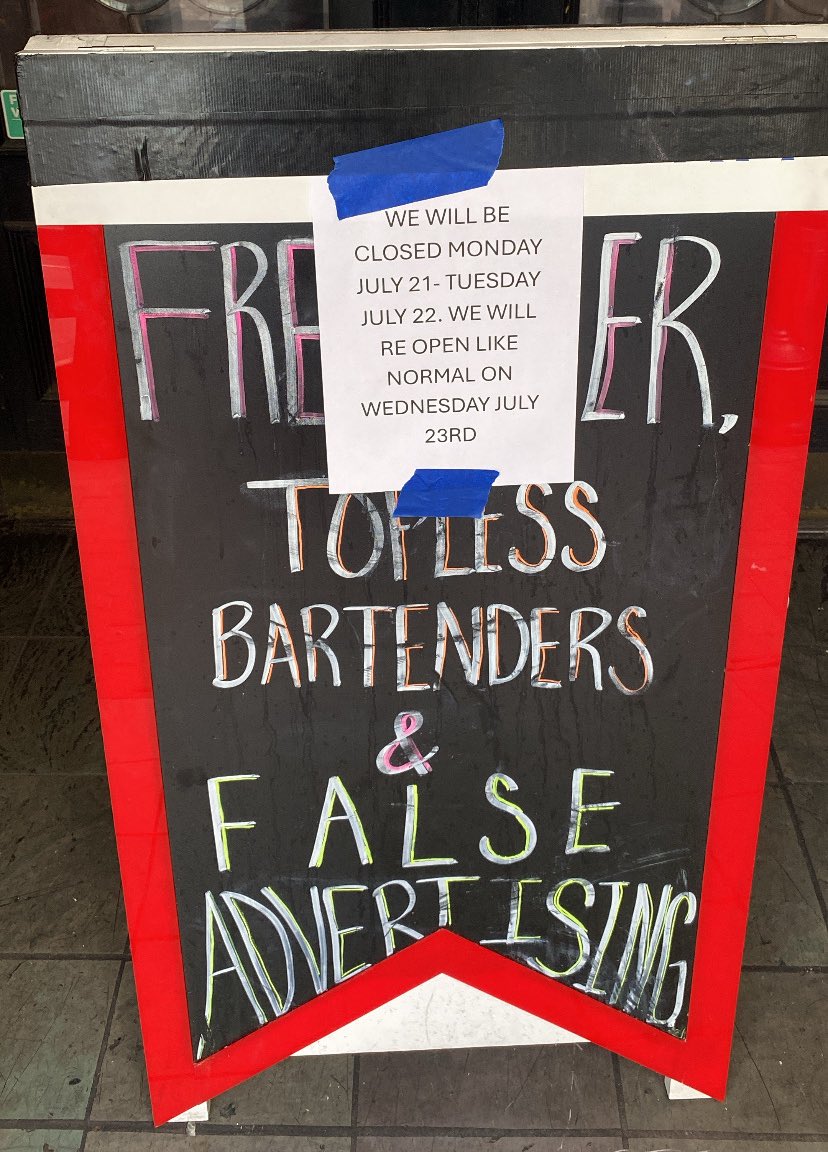 WE WILL BE
CLOSED MONDAY
JULY 21- TUESDAY
JULY 22. WE WILL
RE OPEN LIKE
NORMAL ON
WEDNESDAY JULY
23RD
FRE ER,
TOPLESS
BARTENDERS
&
FALSE
ADVERTISING